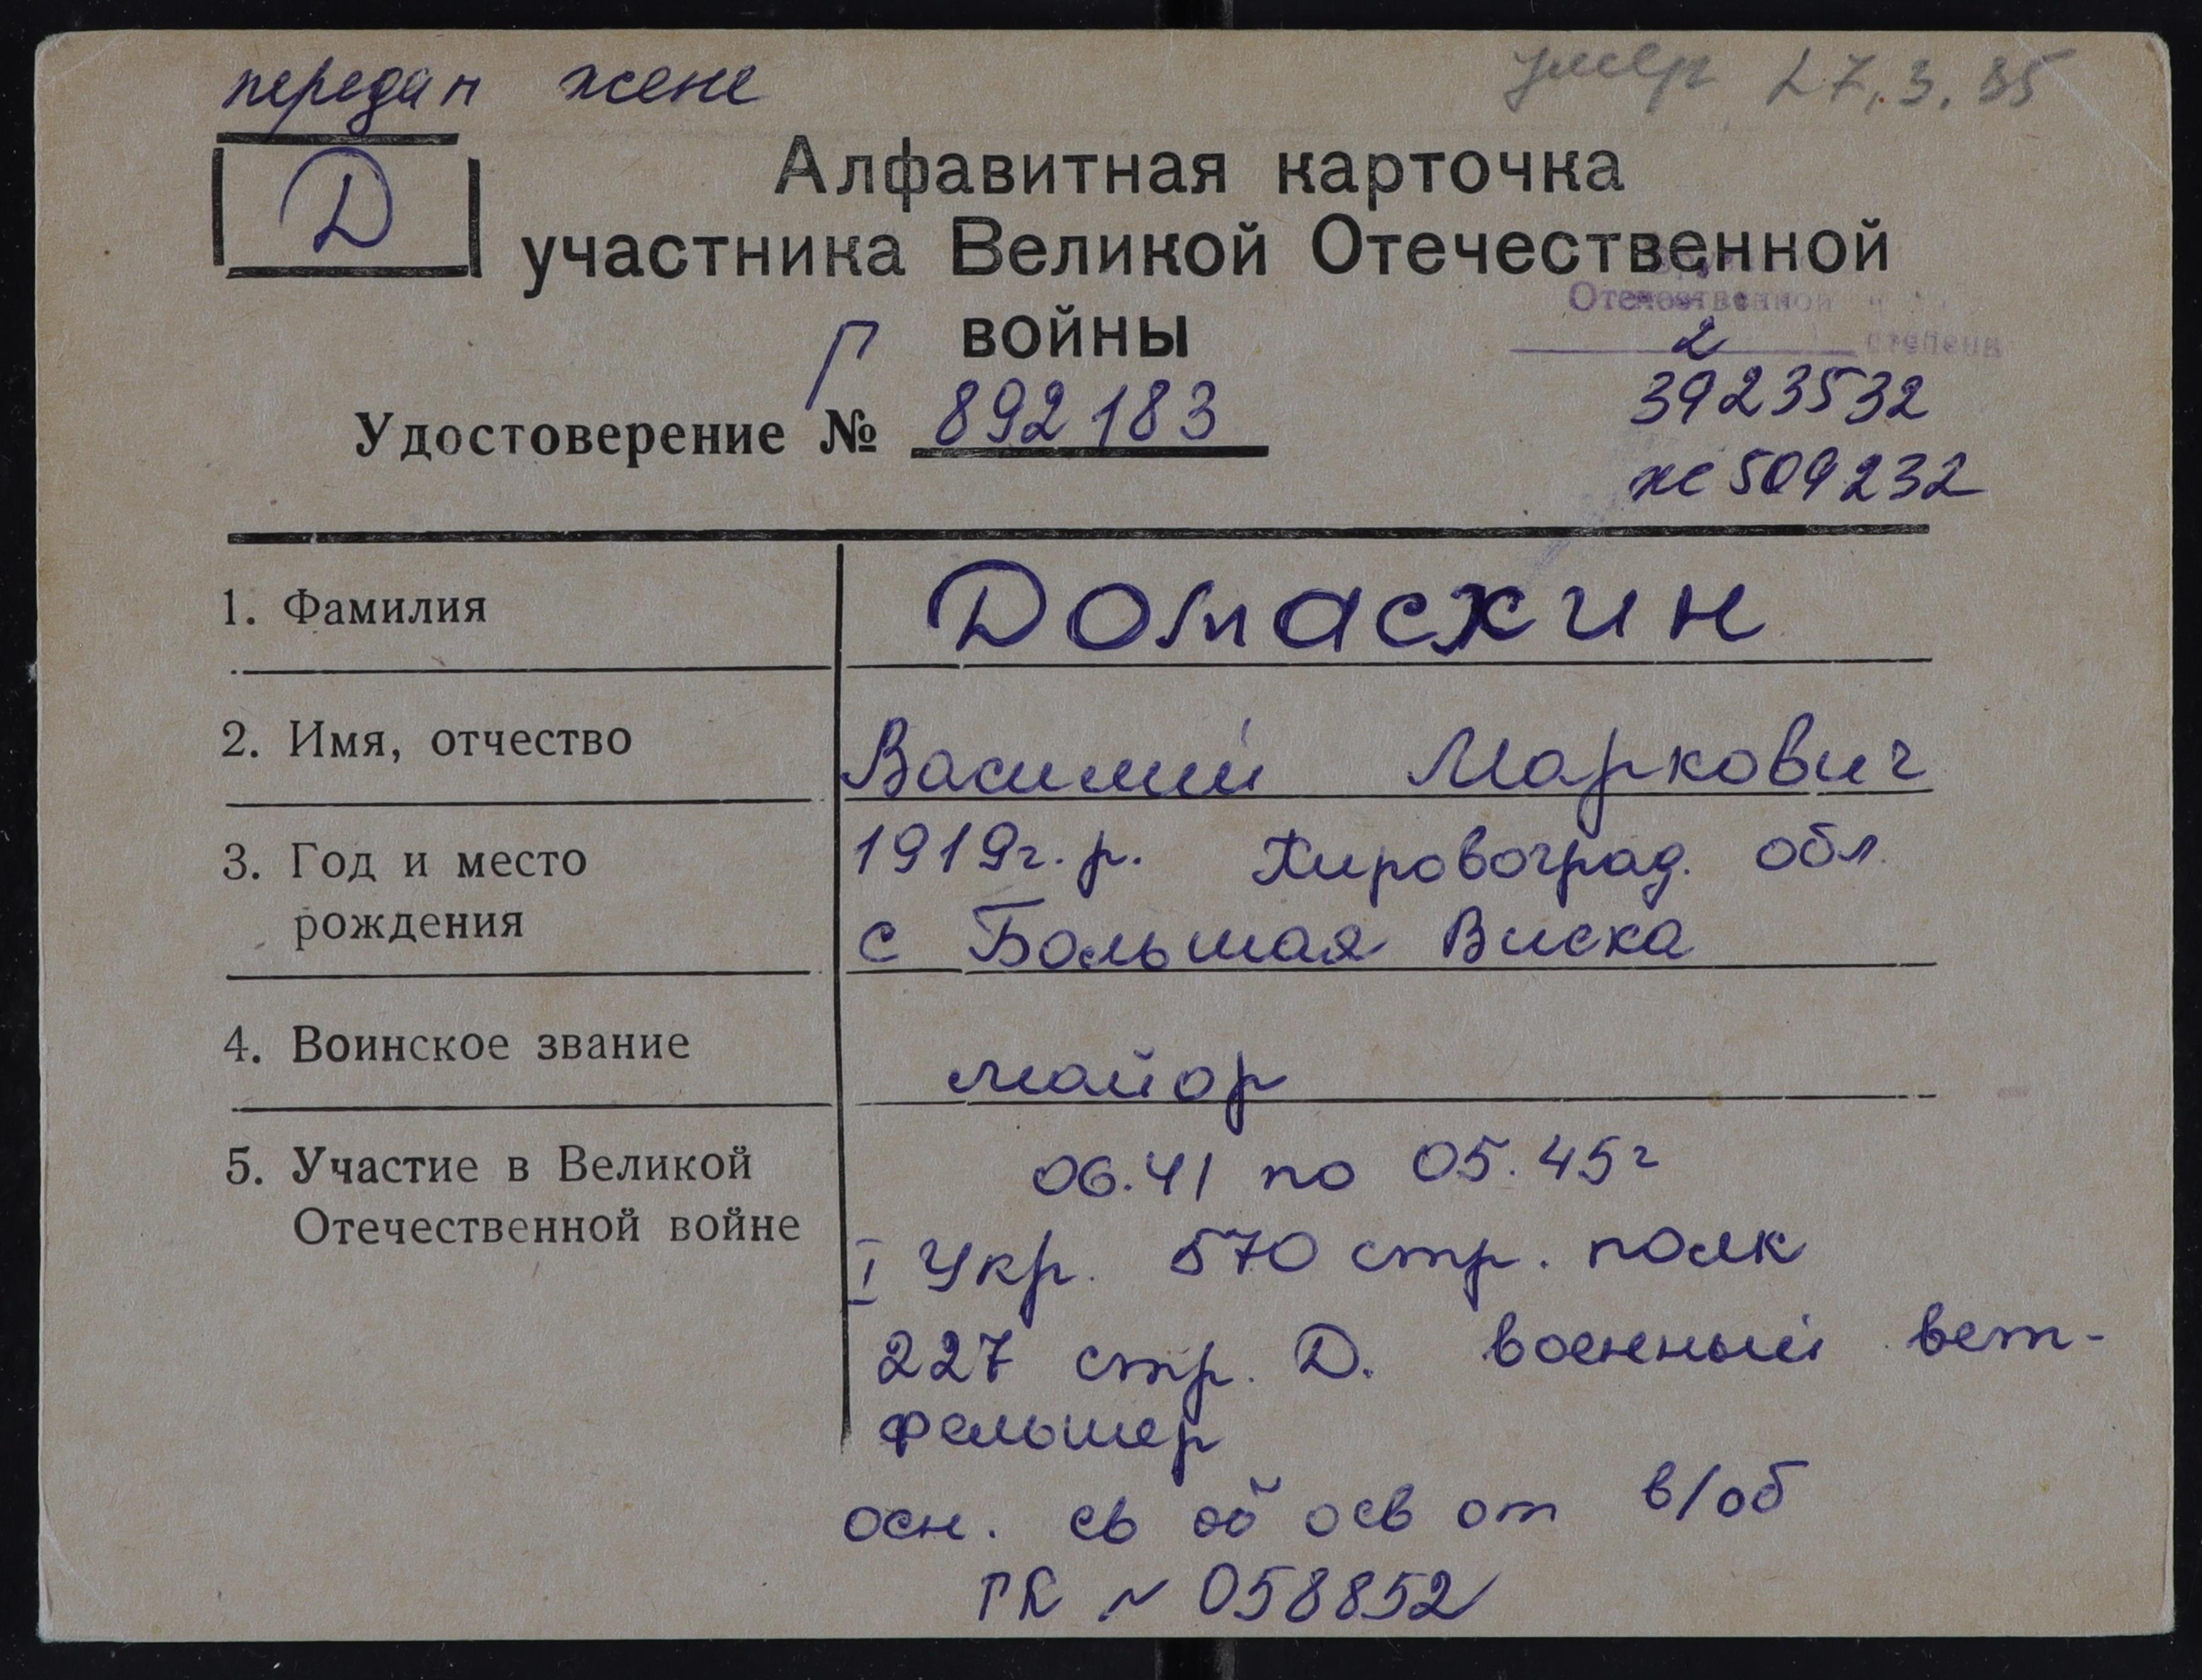 передан жене
умер 27.3.85
Д
Алфавитная карточка
участника Великой Отечественной
войны
Отечественной
2 степени
3923532
Удостоверение Г № 892183
же 509232
1. Фамилия Домаскин
2. Имя, отчество Василий Маркович
3. Год и место 1919г.р. Кировоград. обл.
рождения с Большая Виска
4. Воинское звание майор
5. Участие в Великой 06.41 по 05.45г
Отечественной войне I Укр. 570 стр. полк
227 стр. Д. военный вет-
фельшер
осн. св об осв от в/об
ГК № 058852